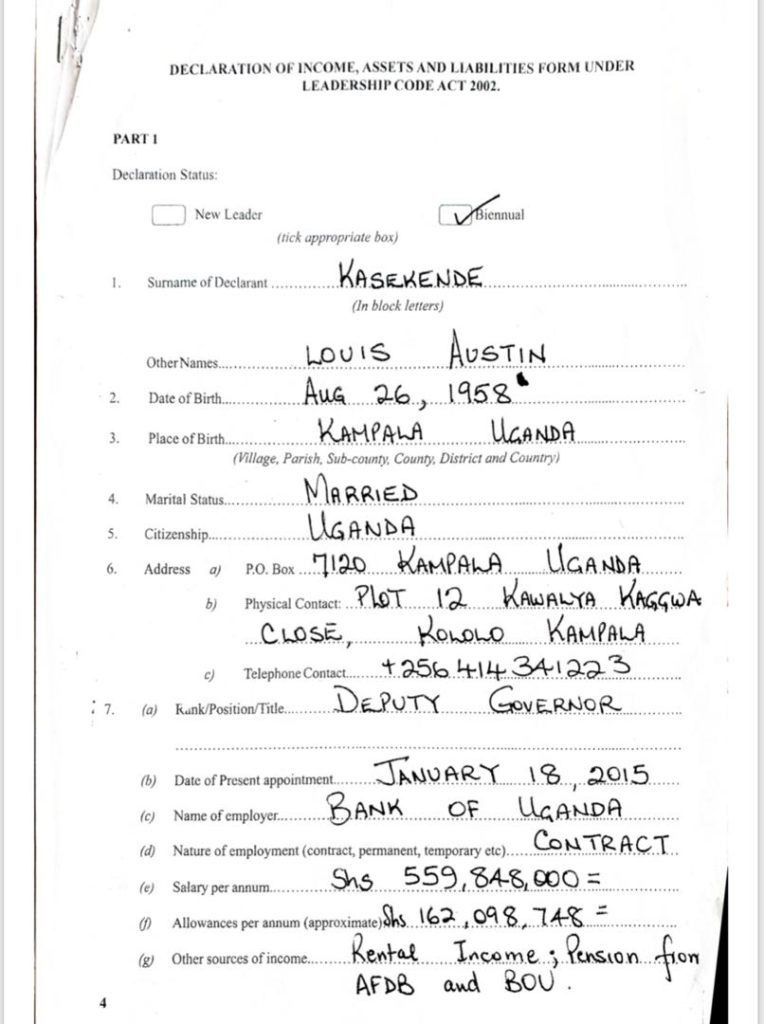 DECLARATION OF INCOME, ASSETS AND LIABILITIES FORM UNDER
LEADERSHIP CODE ACT 2002.
PART 1
Declaration Status:
New Leader
Biennual
(tick appropriate box)
1. Surname of Declarant .......... KASEKENDE
(In block letters)
Other Names.......... LOUIS AUSTIN
2. Date of Birth.......... AUG 26, 1958
3. Place of Birth.......... KAMPALA UGANDA
(Village, Parish, Sub-county, County, District and Country)
4. Marital Status.......... MARRIED
5. Citizenship.......... UGANDA
6. Address a) P.O. Box .... 7120 KAMPALA UGANDA
b) Physical Contact: PLOT 12 KAWALYA KAGGWA
CLOSE, KOLOLO KAMPALA
c) Telephone Contact.......... +256 414 341223
7. (a) Rank/Position/Title.......... DEPUTY GOVERNOR
(b) Date of Present appointment.......... JANUARY 18, 2015
(c) Name of employer.......... BANK OF UGANDA
(d) Nature of employment (contract, permanent, temporary etc)..... CONTRACT
(e) Salary per annum.......... Shs 559,848,000=
(f) Allowances per annum (approximate) Shs 162,098,748=
(g) Other sources of income.......... Rental Income; Pension from
AFDB and BOU.
4